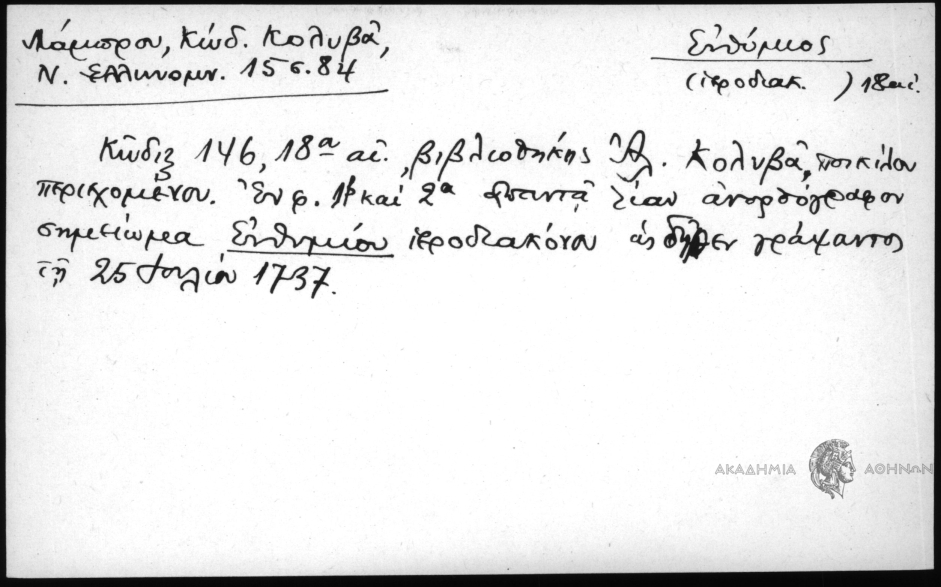 Λάμπρου, Κώδ. Κολυβᾶ,
Ν. Ἑλληνομν. 15 σ. 84
Εὐθύμιος
(ἱεροδιακ. ) 18 αἰ.
Κῶδιξ 146, 18ου αἰ., βιβλιοθήκης Ἀλ. Κολυβᾶ, ποικίλου
περιεχομένου. Ἐν φ. 1β καὶ 2α ἀπαντᾷ λίαν ἀνορθόγραφον
σημείωμα Εὐθυμίου ἱεροδιακόνου γράψαντος
τῇ 25 Ἰουλίου 1737.
ΑΚΑΔΗΜΙΑ ΑΘΗΝΩΝ